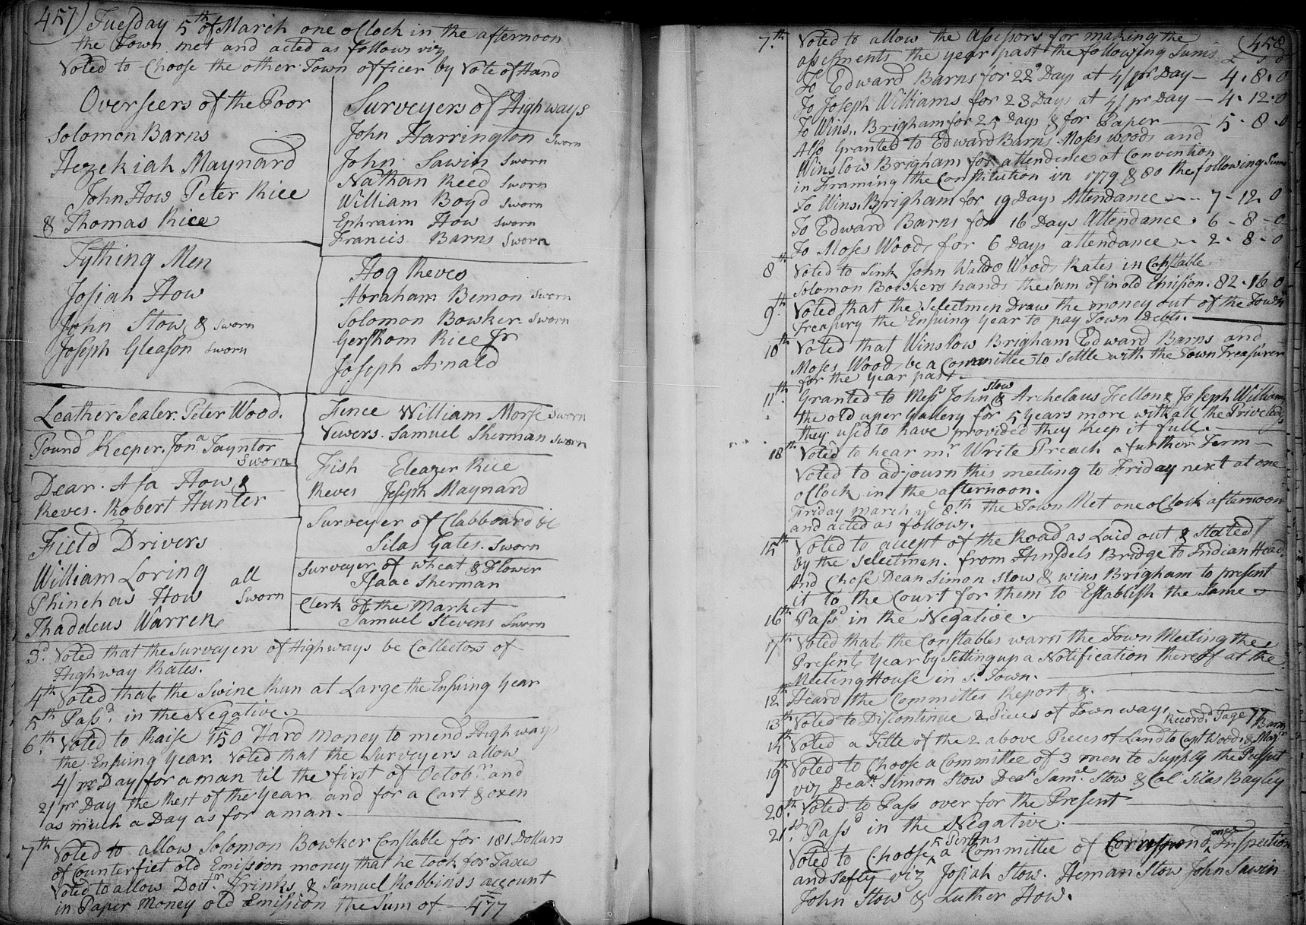 457
Tuesday 5th of March one oClock in the afternoon
the Town met and acted as follows viz
Voted to Choose the other Town officer by Vote of Hand
Overseers of the Poor
Solomon Barns
Hezekiah Maynard
John How Peter Rice
& Thomas Rice
Surveyers of Highways
John Harrington Sworn
John Sawin Sworn
Nathan Reed Sworn
William Boyd Sworn
Ephraim How Sworn
Francis Barns Sworn
Tything Men
Josiah How
John Stow & Sworn
Joseph Gleason Sworn
Hog Reves
Abraham Bemon Sworn
Solomon Bowker Sworn
Gershom Rice Jr
Joseph Arnald
Leather Sealer. Peter Wood.
Pound Keeper. Jona Tayntor
Sworn
Dear. Asa How &
Reves. Robert Hunter
Field Drivers
William Loring all
Phinehas How Sworn
Thaddeus Warren
Fence William Morse Sworn
Vewers. Samuel Sherman Sworn
Fish Eleazer Rice
Reves Joseph Maynard
Surveyer of Clabboard &c
Silas Gates. Sworn
Surveyer of Wheat & Flower
Isaac Sherman
Clerk of the Market
Samuel Stevens Sworn
3d. Voted that the Surveyers of Highways be Collectors of
Highway Rates.
4th Voted that the Swine Run at Large the Ensuing Year
5th Pass'd in the Negative.
6th. Voted to Raise £150 Hard Money to mend Highways
the Ensuing Year. Voted that the Surveyers allow
4/ pr Day for a man til the first of Octobr and
2/ pr Day the Rest of the Year and for a Cart & oxen
as much a Day as for a man.
7th Voted to allow Solomon Bowker Constable for 181 Dollars
of Counterfiet old Emission money that he took for Taxes
Voted to allow Doctr Frinks & Samuel Robbins's account
in Paper Money old Emission the Sum of 477
458
7th Voted to allow the Assessors for making the
assesments the year past the following Sums
To Edward Barns for 22 Days at 4/ pr Day — 4.8.0
To Joseph Williams for 23 Days at 4/ pr Day — 4.12.0
To Wins. Brigham for 25 Days & for Paper — 5.8.0
Also Granted to Edward Barns Moses Woods and
Winslow Brigham for attendence at Convention
in Framing the Constitution in 1779 & 80 the following Sums
To Wins. Brigham for 19 Days Attendance — 7-12.0
To Edward Barns for 16 Days Attendance . 6-8-0
To Moses Woods for 6 Days attendance — 2-8-0
8th Voted to Sink John Waldo Woods Rates in Constable
Solomon Bowkers hands the Sum of in old Emision. 82.16.0
9th. Voted that the Selectmen Draw the money out of the Town
Treasury the Ensuing Year to pay Town Debts.
10th Voted that Winslow Brigham Edward Barns and
Moses Woods be a Committee to Settle with the Town Treasurer
for the year past
11th Granted to Messs John Stow & Archelaus Fellon & Joseph Williams
the old uper Gallery for 5 years more with all the Priveledgs
they used to have provided they keep it full.
18th. Voted to hear mr. Write Preach a further Term
Voted to adjourn this meeting to Friday next at one
oClock in the afternoon.
Friday march ye 8th the Town Met one oClock afternoon
and acted as follows.
15th Voted to accept of the Road as Laid out & Stated
by the Selectmen. from Handels Bridge to Indian Head
And Chose Dean Simon Stow & Wins Brigham to present
it to the Court for them to Establish the Same
16th Pass'd in the Negative
17th Voted that the Constables warn the Town Meeting the
Present Year by Setting up a Notification thereof at the
Meeting House in sd. Town.
12th Heard the Committees Report &.
13th Voted to Discontinue 2 Pieces of Town way. Record. Page 77
14th Voted a Title of the 2 above Pieces of Land to Capt Woods & Majr Barns
19th Voted to Choose a Committee of 3 men to Supply the Pulpit
viz Deacn. Simon Stow Deacn Saml. Stow & Col Silas Bayley
20th. Voted to Pass over for the Present
21st Pass'd in the Negative.
Voted to Choose 5 Persons a Committee of Correspondance Inspection
and Safety viz Josiah Stow. Heman Stow John Sawin
John Stow & Luther How.